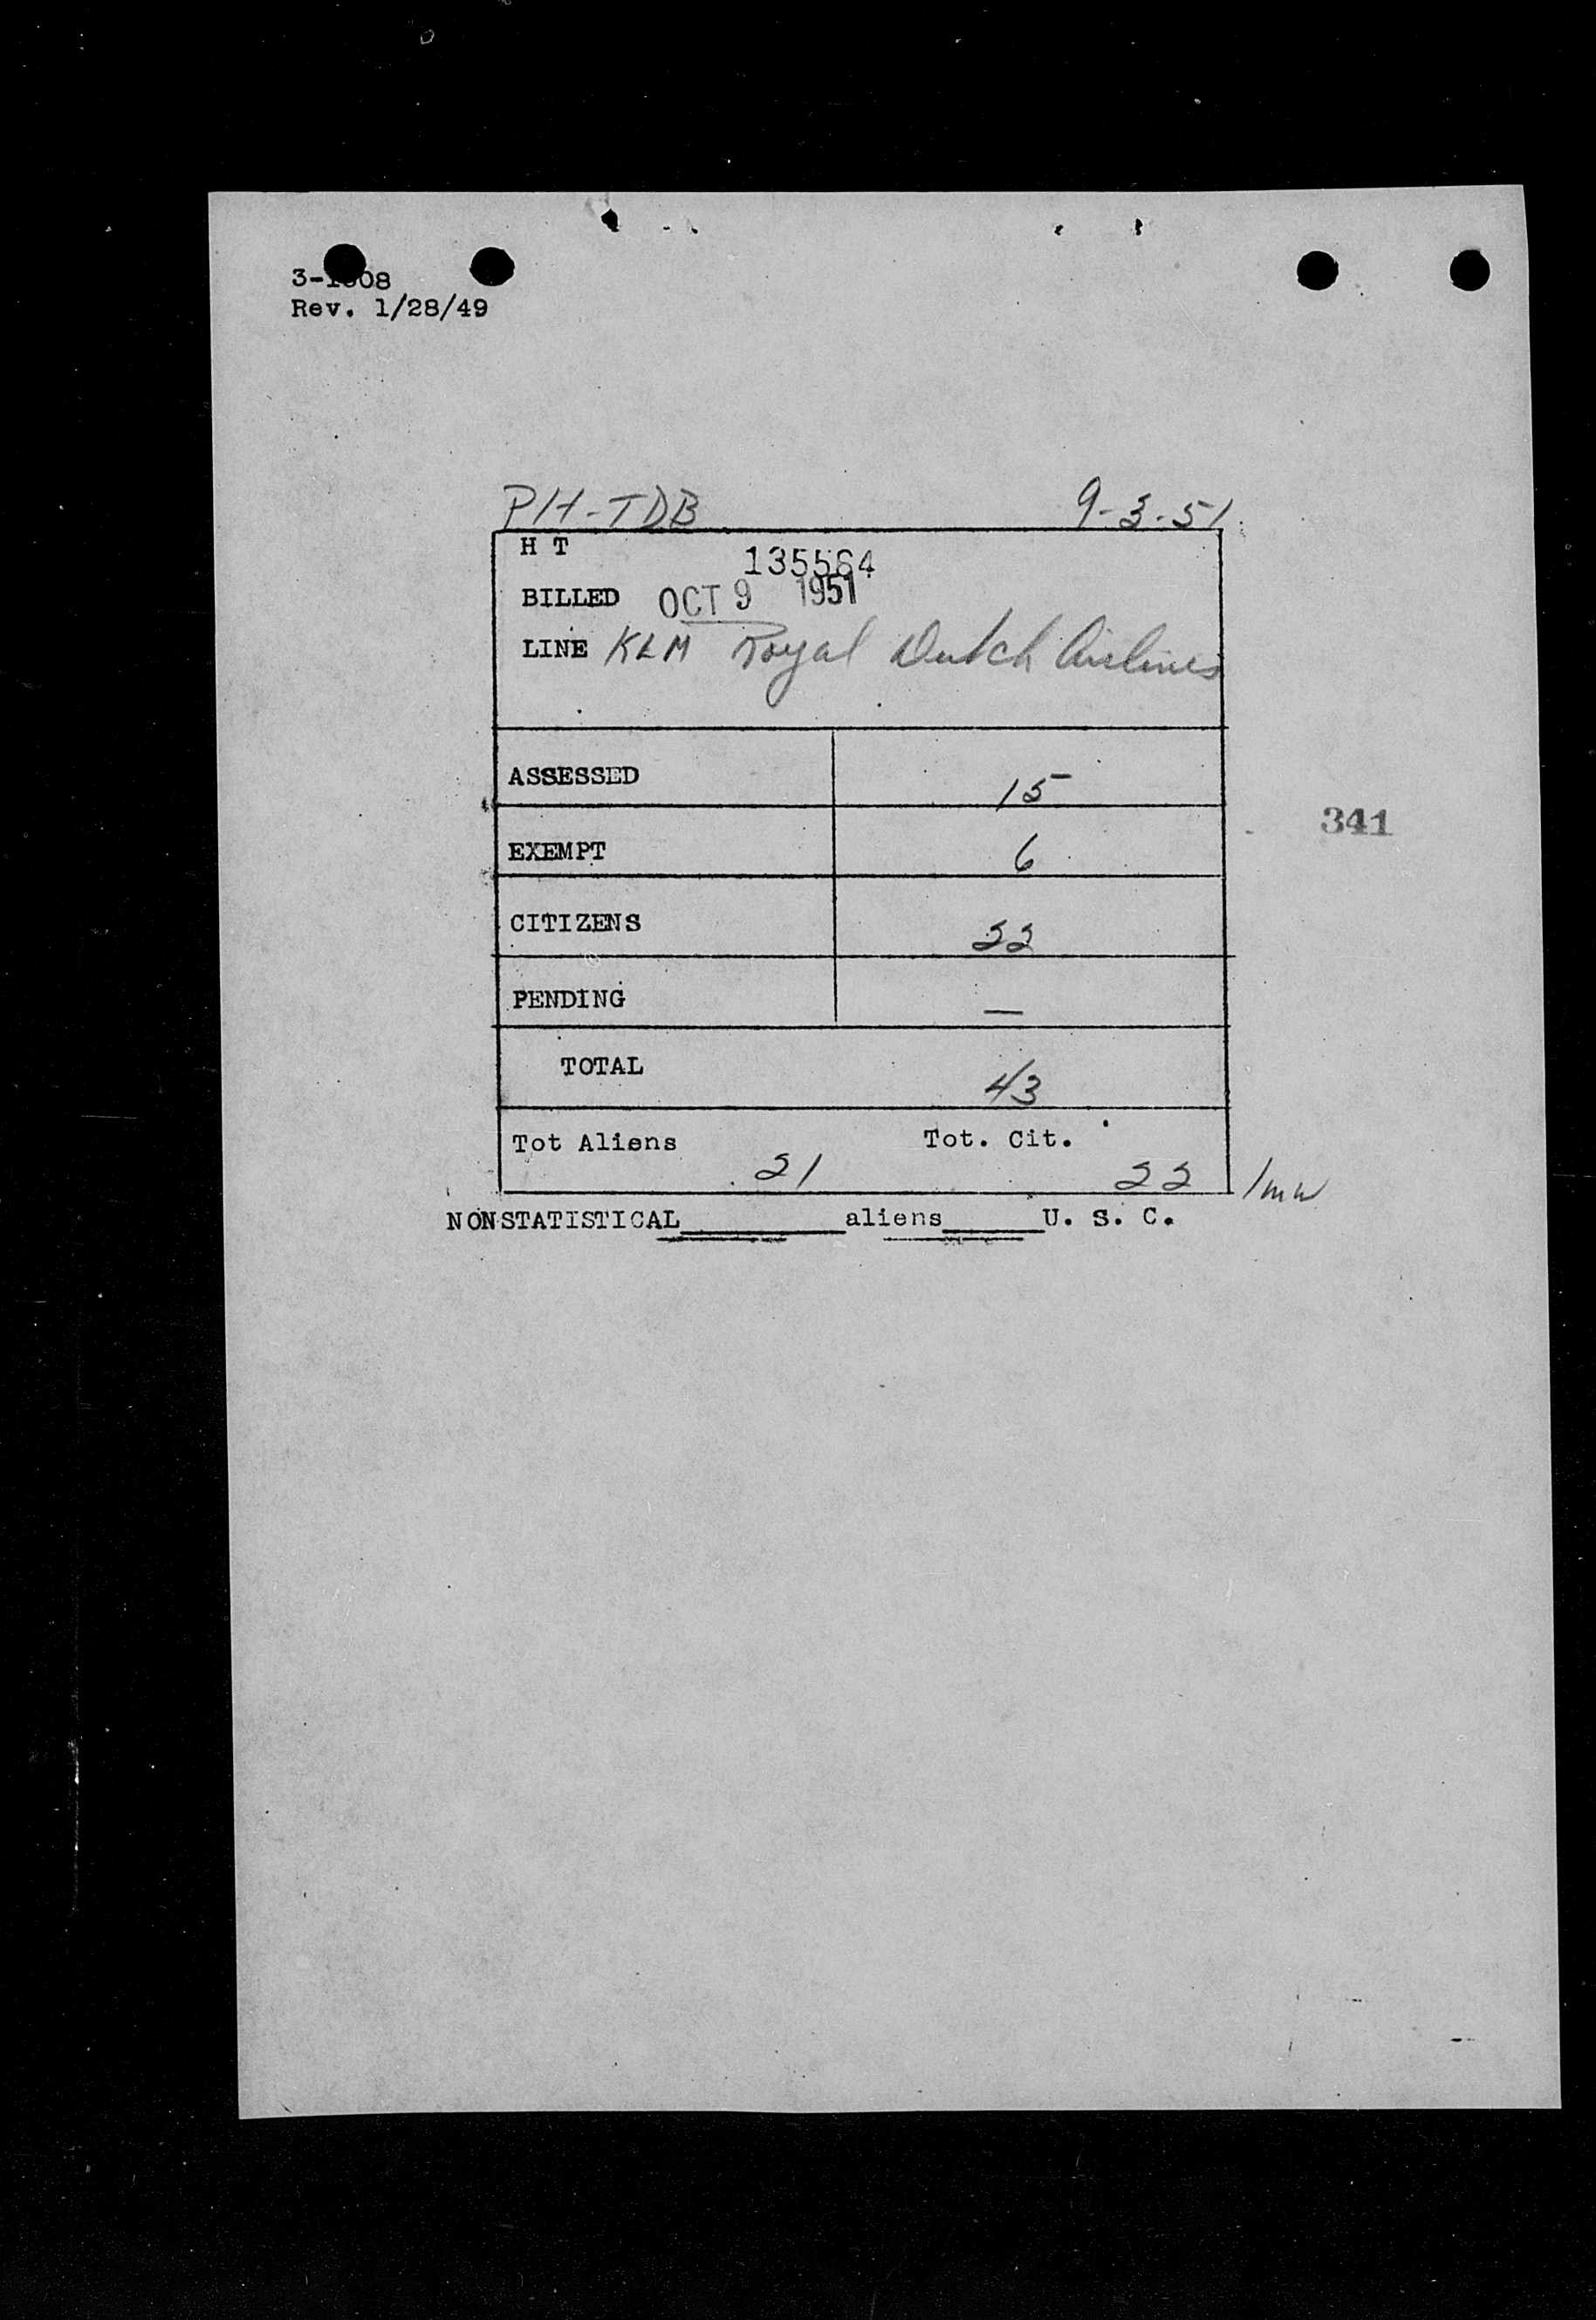 Rev. 1/28/49
PH-TDB 9-3-51
H T 135564
BILLED OCT 9 1951
LINE KLM Royal Dutch Airlines
ASSESSED 15
341
EXEMPT 6
CITIZENS 22
PENDING —
TOTAL 43
Tot Aliens 21 Tot. Cit. 22 /mw
NONSTATISTICAL________aliens_____U. S. C.